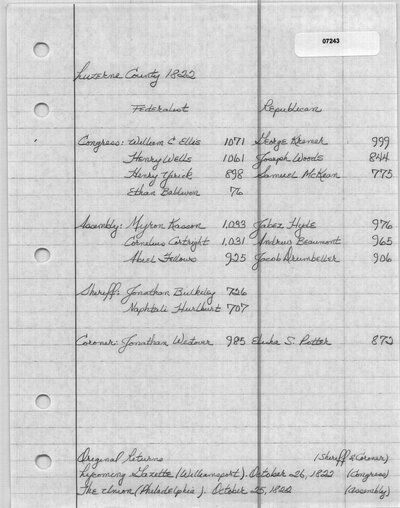 07243
Luzerne County 1822
Federalist Republican
Congress: William C Ellis 1071 George Kremer 999
Henry Wells 1061 Joseph Woods 844
Henry Yorick 898 Samuel McKean 775
Ethan Baldwin 76
Assembly: Myron Kasson 1,093 Jabez Hyde 976
Cornelius Cortright 1,031 Andrew Beaumont 965
Abiel Fellows 925 Jacob Drumheller 906
Sheriff: Jonathan Bulkeley 726
Naphtali Hurlburt 707
Coroner: Jonathan Westover 985 Elisha S. Potter 872
Original Returns (Sheriff & Coroner)
Lycoming Gazette (Williamsport). October 26, 1822 (Congress)
The Union (Philadelphia). October 25, 1822 (Assembly)